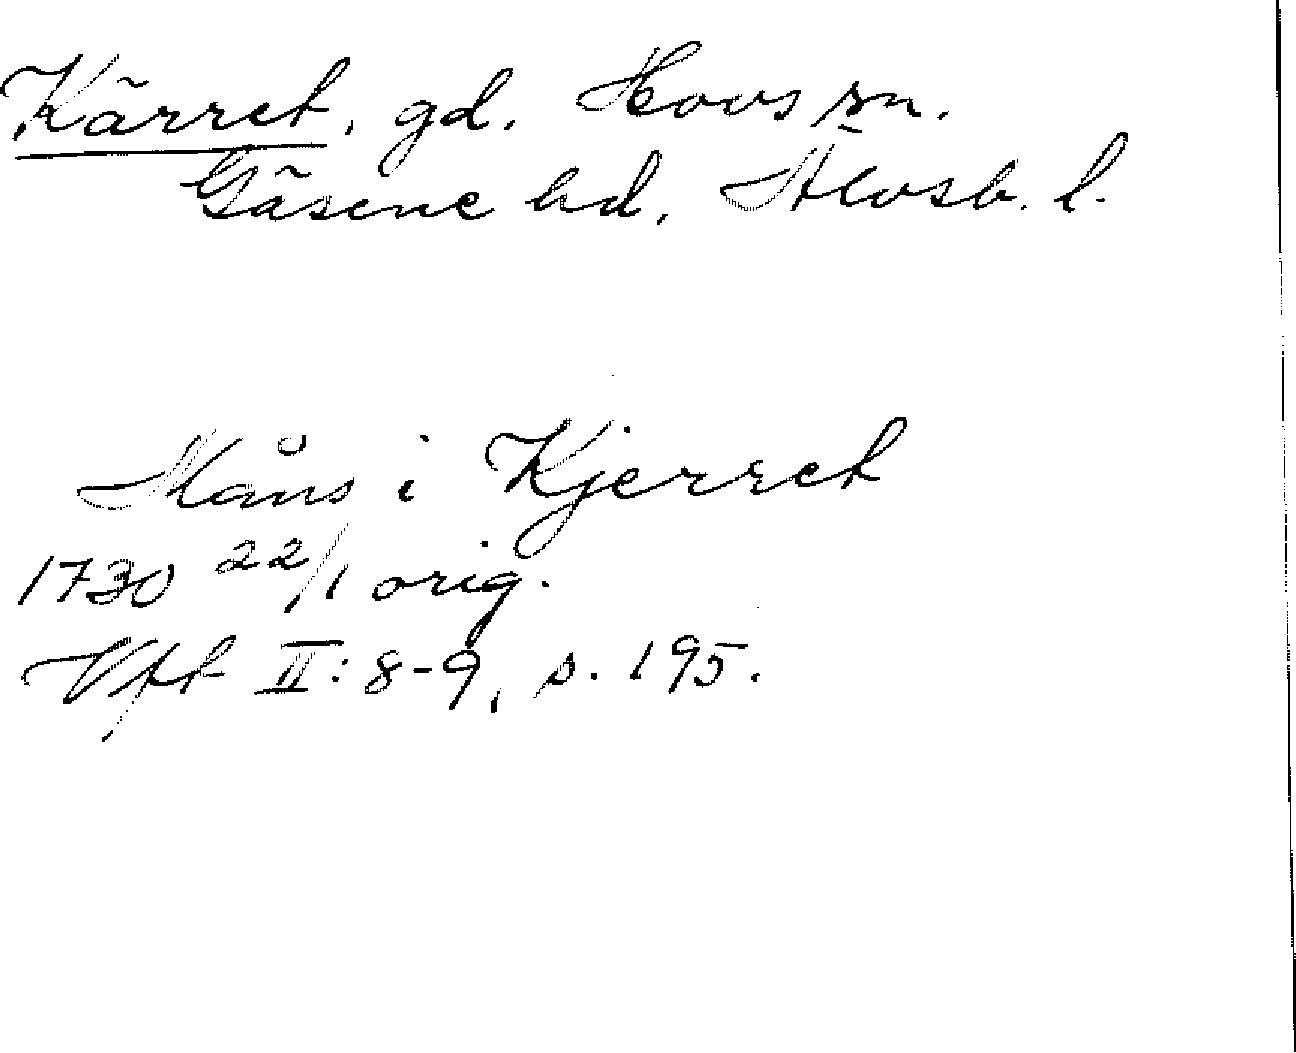 Kärret, gd. Hovs sn.
Gäsene hd, Älvsb. l.
Måns i Kjerret
1730 22/1 orig.
Vfft II: 8-9, s. 195.